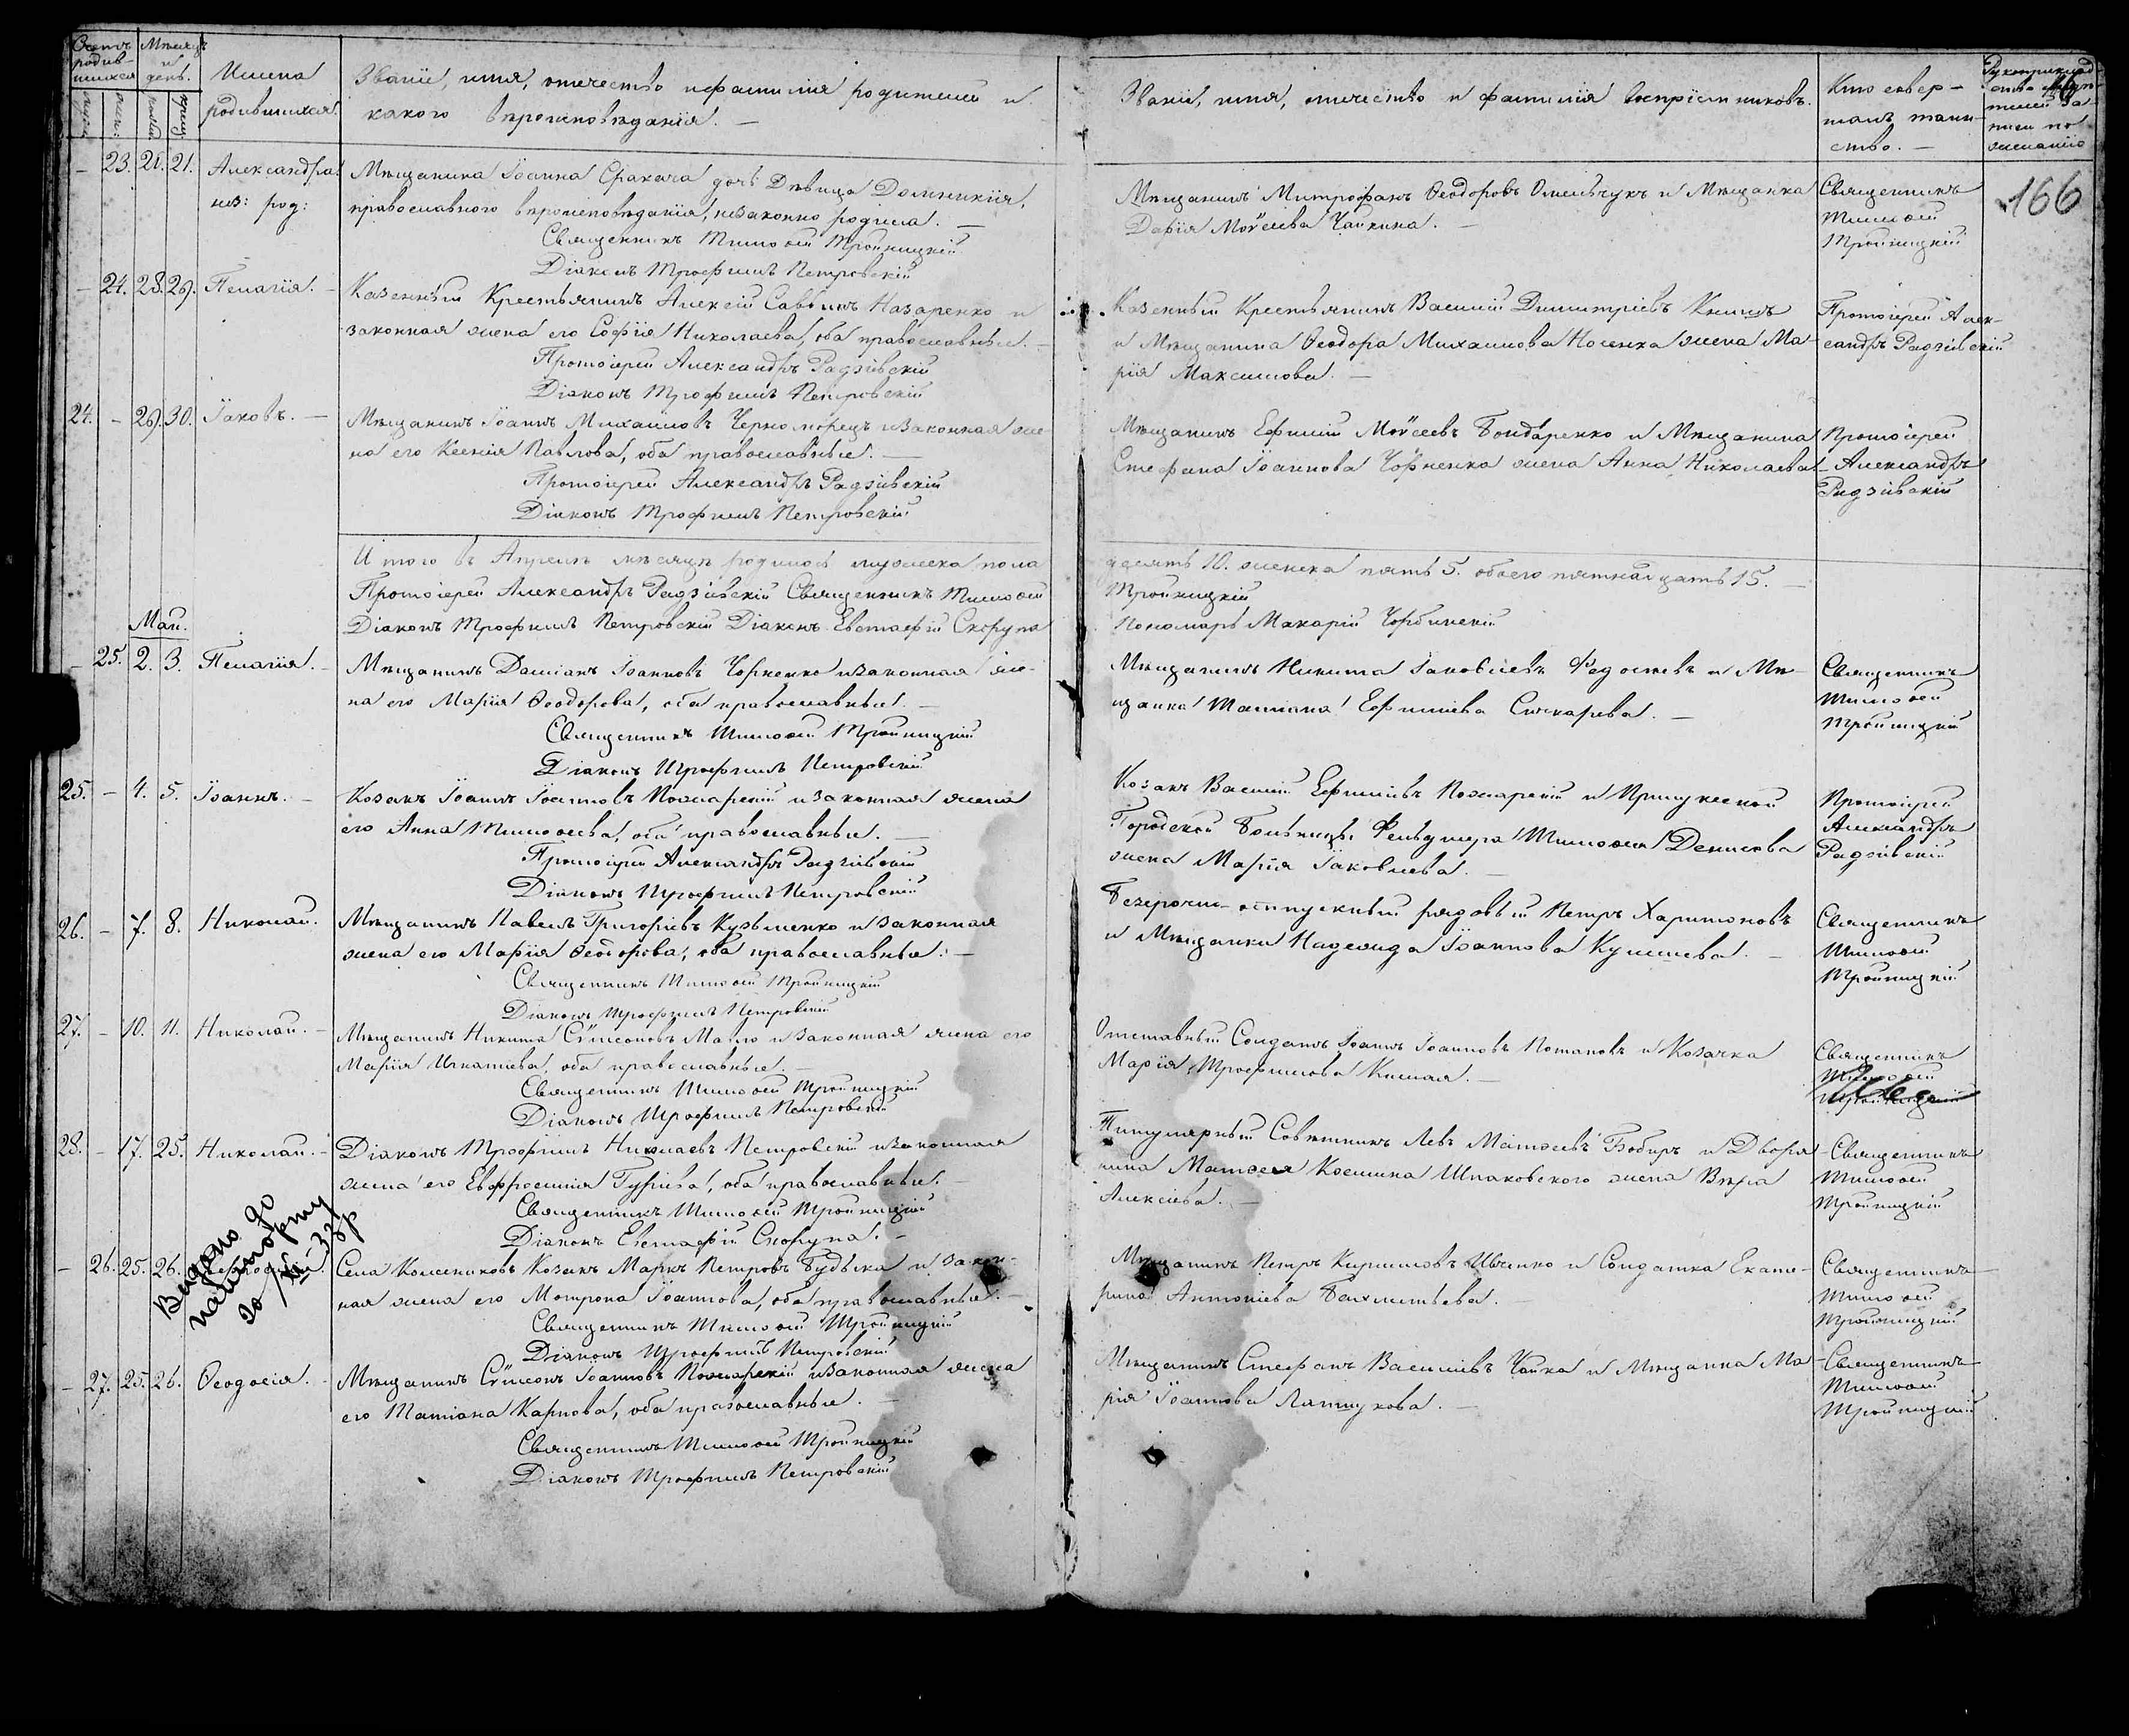 Счетъ родив-шихся
Мѣсяцъ и день.
Имена родившихся.
Званіе, имя, отчество и фамилія родителей и
какого вѣроисповѣданія. —
Званіе, имя, отчество и фамилія воспріемниковъ.
Кто совер-
шалъ таин-
ство. —
166
— 23. 21. 21. Александра
нез: род:
Мѣщанина Іоанна дочь Дѣвица Домникія,
православного вѣроисповѣданія, незаконно родила. —
Священникъ Тимоѳей Тройницкій
Діаконъ Трофимъ Петровскій
Мѣщанинъ Митрофанъ Ѳеодоровъ Омельчукъ и Мѣщанка
Дарія Моѵсеева Чайкина. —
Священникъ
Тимоѳей
Тройницкій
— 24. 28. 29. Пелагія. —
Казенный Крестьянинъ Алексій Саввинъ Назаренко и
законная жена его Софія Николаева, оба православные. —
Протоіерей Александръ Радзіевскій
Діаконъ Трофимъ Петровскій
Казенный Крестьянинъ Василій Димитріевъ Книшъ
и Мѣщанина Ѳеодора Михайлова Носенка жена Ма-
рія Максимова. —
Протоіерей Алек-
сандръ Радзіевскій
24. — 29. 30. Іаковъ. —
Мѣщанинъ Іоаннъ Михайловъ Черноморецъ и законная же-
на его Ксенія Павлова, оба православные. —
Протоіерей Александръ Радзіевскій
Діаконъ Трофимъ Петровскій
Мѣщанинъ Ефимій Моѵсеевъ Бондаренко и Мѣщанина
Стефана Іоаннова Чорненка жена Анна Николаева
Протоіерей
Александръ
Радзіевскій
Итого въ Апрѣлѣ мѣсяцѣ родилось мужеска пола
десять 10. женска пять 5. обоего пятнадцать 15. —
Протоіерей Александръ Радзіевскій Священникъ Тимоѳей
Тройницкій
Діаконъ Трофимъ Петровскій Діаконъ Евстафій Скорупа
Пономарь Макарій Чорбинскій
Май.
— 25. 2. 3. Пелагія. —
Мѣщанинъ Даміанъ Іоанновъ Чорненко и законная же-
на его Марія Ѳеодорова, оба православные. —
Священникъ Тимоѳей Тройницкій
Діаконъ Трофимъ Петровскій
Мѣщанинъ Никита Іаковлевъ Федостевъ и Мѣ-
щанка Татіана Ефимiева Снѣкарева. —
Священникъ
Тимоѳей
Тройницкій
25. — 4. 5. Іоаннъ. —
Козакъ Іоаннъ Іоанновъ Пожарскій и законная жена
его Анна Тимоѳеева, оба православные. —
Протоіерей Александръ Радзіевскій
Діаконъ Трофимъ Петровскій
Козакъ Василій Ефиміевъ Пожарскій и Прилукской
Городской Больницы Фельдшера Тимоѳея Денисова
жена Марія Іаковлева. —
Протоіерей
Александръ
Радзіевскій
26. — 7. 8. Николай.
Мѣщанинъ Павелъ Григоріевъ Кузьменко и законная
жена его Марія Ѳеодорова, оба православные. —
Священникъ Тимоѳей Тройницкій
Діаконъ Трофимъ Петровскій
Безсрочно-отпускный рядовый Петръ Харитоновъ
и Мѣщанки Надежда Іоаннова Кулишева. —
Священникъ
Тимоѳей
Тройницкій
27. — 10. 11. Николай. —
Мѣщанинъ Никита Сѵмеоновъ Мало и законная жена его
Марія Игнатіева, оба православные. —
Священникъ Тимоѳей Тройницкій
Діаконъ Трофимъ Петровскій
Отставный Солдатъ Іоаннъ Іоанновъ Потаповъ и Козачка
Марія Трофимова Кислая. —
Священникъ
Тимоѳей
Тройницкій
28. — 17. 25. Николай. —
Діаконъ Трофимъ Николаевъ Петровскій и законная
жена его Евфросинія Гуріева, оба православные.
Священникъ Тимоѳей Тройницкій
Діаконъ Евстафій Скорупа. —
Титулярный Совѣтникъ Левъ Матѳеевъ Бобырь и Дворя-
нина Матѳея Космина Шпаковского жена Вѣра
Алексіева. —
Священникъ
Тимоѳей
Тройницкій
Видано до
паспорту
20/XII 33 р
— 26. 25. 26.
Села Колесниковъ Козакъ Маркъ Петровъ Гудыма и закон-
ная жена его Мотрона Іоаннова, оба православные. —
Священникъ Тимоѳей Тройницкій
Діаконъ Трофимъ Петровскій
Мѣщанинъ Петръ Кириловъ Ивченко и Солдатка Екате-
рина Антоніева Бахметьева. —
Священникъ
Тимоѳей
Тройницкій
— 27. 25. 26. Ѳеодосія. —
Мѣщанинъ Сѵмеонъ Іоанновъ Пожарскій и законная жена
его Татіана Карпова, оба православные. —
Священникъ Тимоѳей Тройницкій
Діаконъ Трофимъ Петровскій
Мѣщанинъ Стефанъ Василіевъ Чайка и Мѣщанка Ма-
рія Іоаннова Лапшукова. —
Священникъ
Тимоѳей
Тройницкій